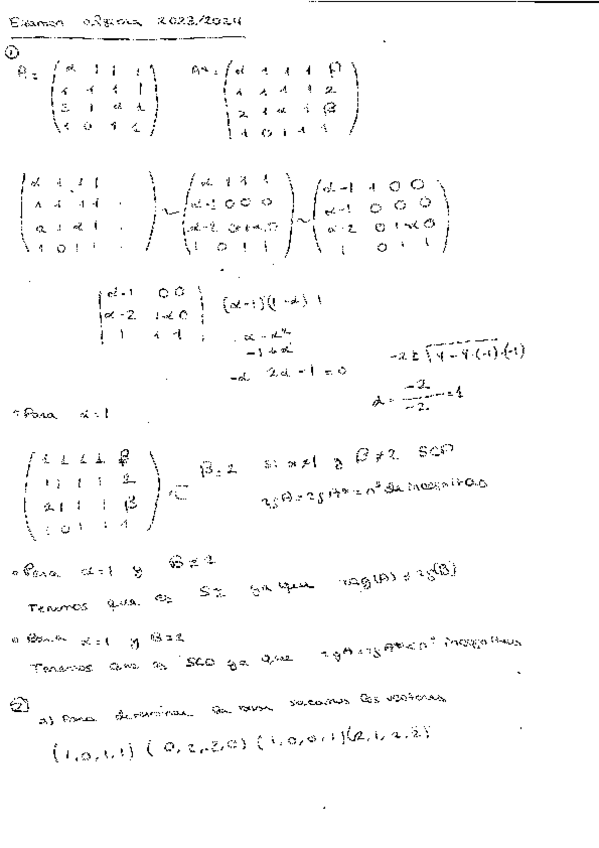 Examen algebra 2023/2024
①
A = ( α 1 1 1 A* = ( α 1 1 1 β
1 1 1 1 1 1 1 1 2
2 1 α 1 2 1 α 1 β
1 0 1 1 ) 1 0 1 1 1 )
( α 1 1 1 ~ ( α 1 1 1 ~ ( α-1 1 0 0
1 1 1 1 . α-1 0 0 0 α-1 0 0 0
2 1 α 1 . α-2 0 1+α 0 α-2 0 1-α 0
1 0 1 1 . ) 1 0 1 1 ) 1 0 1 1 )
| α-1 0 0 | (α-1)(1-α) 1
| α-2 1-α 0 |
| 1 1 1 | α - α²
-1+α
-α 2α - 1 = 0
-2 ± √4-4·(-1)·(-1)
α = -2/-2 = 1
Para α=1
( 1 1 1 1 β
1 1 1 1 2
2 1 1 1 β
1 0 1 1 1 ) β=2 Si α≠1 y β≠2 SCD
rgA = rgA* = nº de incognitas
Para α=1 y β≠2
Tenemos que es SI ya que rg(A) ≠ rg(B)
Para α=1 y β=2
Tenemos que es SCD ya que rgA = rgA* < nº incognitas
②
a) Para determinar la base sacamos los vectores
(1,0,1,1) (0,2,-2,0) (1,0,0,1) (2,1,2,2)